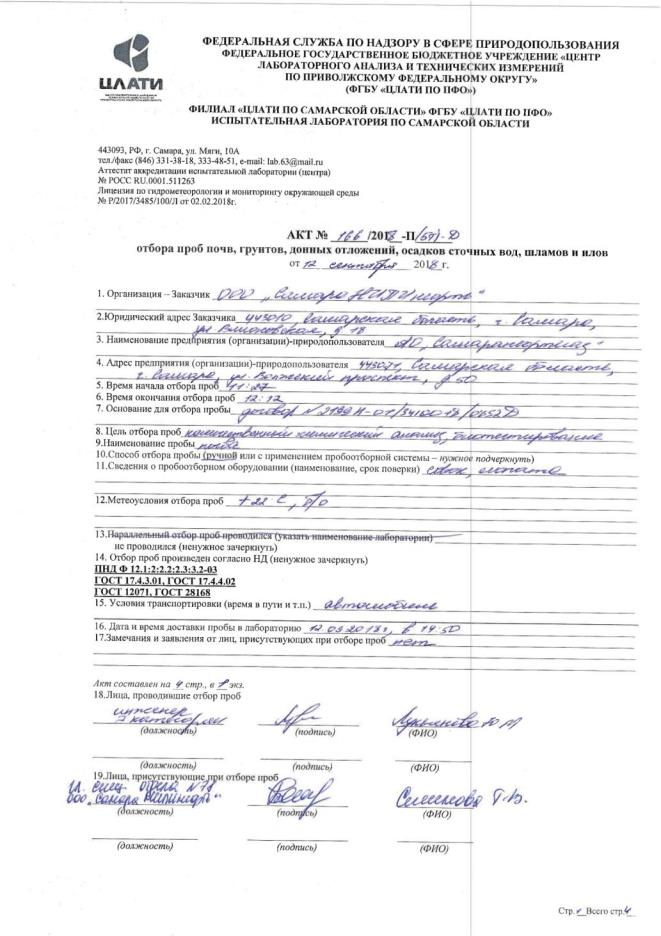 ФЕДЕРАЛЬНАЯ СЛУЖБА ПО НАДЗОРУ В СФЕРЕ ПРИРОДОПОЛЬЗОВАНИЯ
ФЕДЕРАЛЬНОЕ ГОСУДАРСТВЕННОЕ БЮДЖЕТНОЕ УЧРЕЖДЕНИЕ «ЦЕНТР
ЛАБОРАТОРНОГО АНАЛИЗА И ТЕХНИЧЕСКИХ ИЗМЕРЕНИЙ
ПО ПРИВОЛЖСКОМУ ФЕДЕРАЛЬНОМУ ОКРУГУ»
(ФГБУ «ЦЛАТИ ПО ПФО»)
ЦЛАТИ
ФИЛИАЛ «ЦЛАТИ ПО САМАРСКОЙ ОБЛАСТИ» ФГБУ «ЦЛАТИ ПО ПФО»
ИСПЫТАТЕЛЬНАЯ ЛАБОРАТОРИЯ ПО САМАРСКОЙ ОБЛАСТИ
443093, РФ, г. Самара, ул. Мяги, 10А
тел./факс (846) 331-38-18, 333-48-51, e-mail: lab.63@mail.ru
Аттестат аккредитации испытательной лаборатории (центра)
№ РОСС RU.0001.511263
Лицензия по гидрометеорологии и мониторингу окружающей среды
№ Р/2017/3485/100/Л от 02.02.2018г.
АКТ № 166 /2018 -П/(57)-Д
отбора проб почв, грунтов, донных отложений, осадков сточных вод, шламов и илов
от 12 сентября 2018 г.
1. Организация – Заказчик ООО "СамараНИПИнефть"
2.Юридический адрес Заказчика 443010 Самарская область, г. Самара,
ул Вилоновская, д 18
3. Наименование предприятия (организации)-природопользователя АО "Самаранефтегаз"
4. Адрес предприятия (организации)-природопользователя 443071, Самарская область,
г. Самара, ул. Волжский проспект, д 50
5. Время начала отбора проб 11:27
6. Время окончания отбора проб 12:12
7. Основание для отбора пробы договор
8. Цель отбора проб количественный химический анализ, биотестирование
9.Наименование пробы почва
10.Способ отбора пробы (ручной или с применением пробоотборной системы – нужное подчеркнуть)
11.Сведения о пробоотборном оборудовании (наименование, срок поверки) совок, лопата
12.Метеоусловия отбора проб +22 С, б/о
13.Параллельный отбор проб проводился (указать наименование лаборатории)
не проводился (ненужное зачеркнуть)
14. Отбор проб произведен согласно НД (ненужное зачеркнуть)
ПНД Ф 12.1:2:2.2:2.3:3.2-03
ГОСТ 17.4.3.01, ГОСТ 17.4.4.02
ГОСТ 12071, ГОСТ 28168
15. Условия транспортировки (время в пути и т.п.) автомобиль
16. Дата и время доставки пробы в лабораторию 12.09.2018г, в 14:50
17.Замечания и заявления от лиц, присутствующих при отборе проб нет
Акт составлен на 4 стр., в 1 экз.
18.Лица, проводившие отбор проб
инженер
2 категории Лукьянова Ю М
(должность) (подпись) (ФИО)
(должность) (подпись) (ФИО)
19.Лица, присутствующие при отборе проб
гл. спец. отдела N78
ООО "СамараНИПИнефть" Семенова Т.В.
(должность) (подпись) (ФИО)
(должность) (подпись) (ФИО)
Стр.1 Всего стр.4